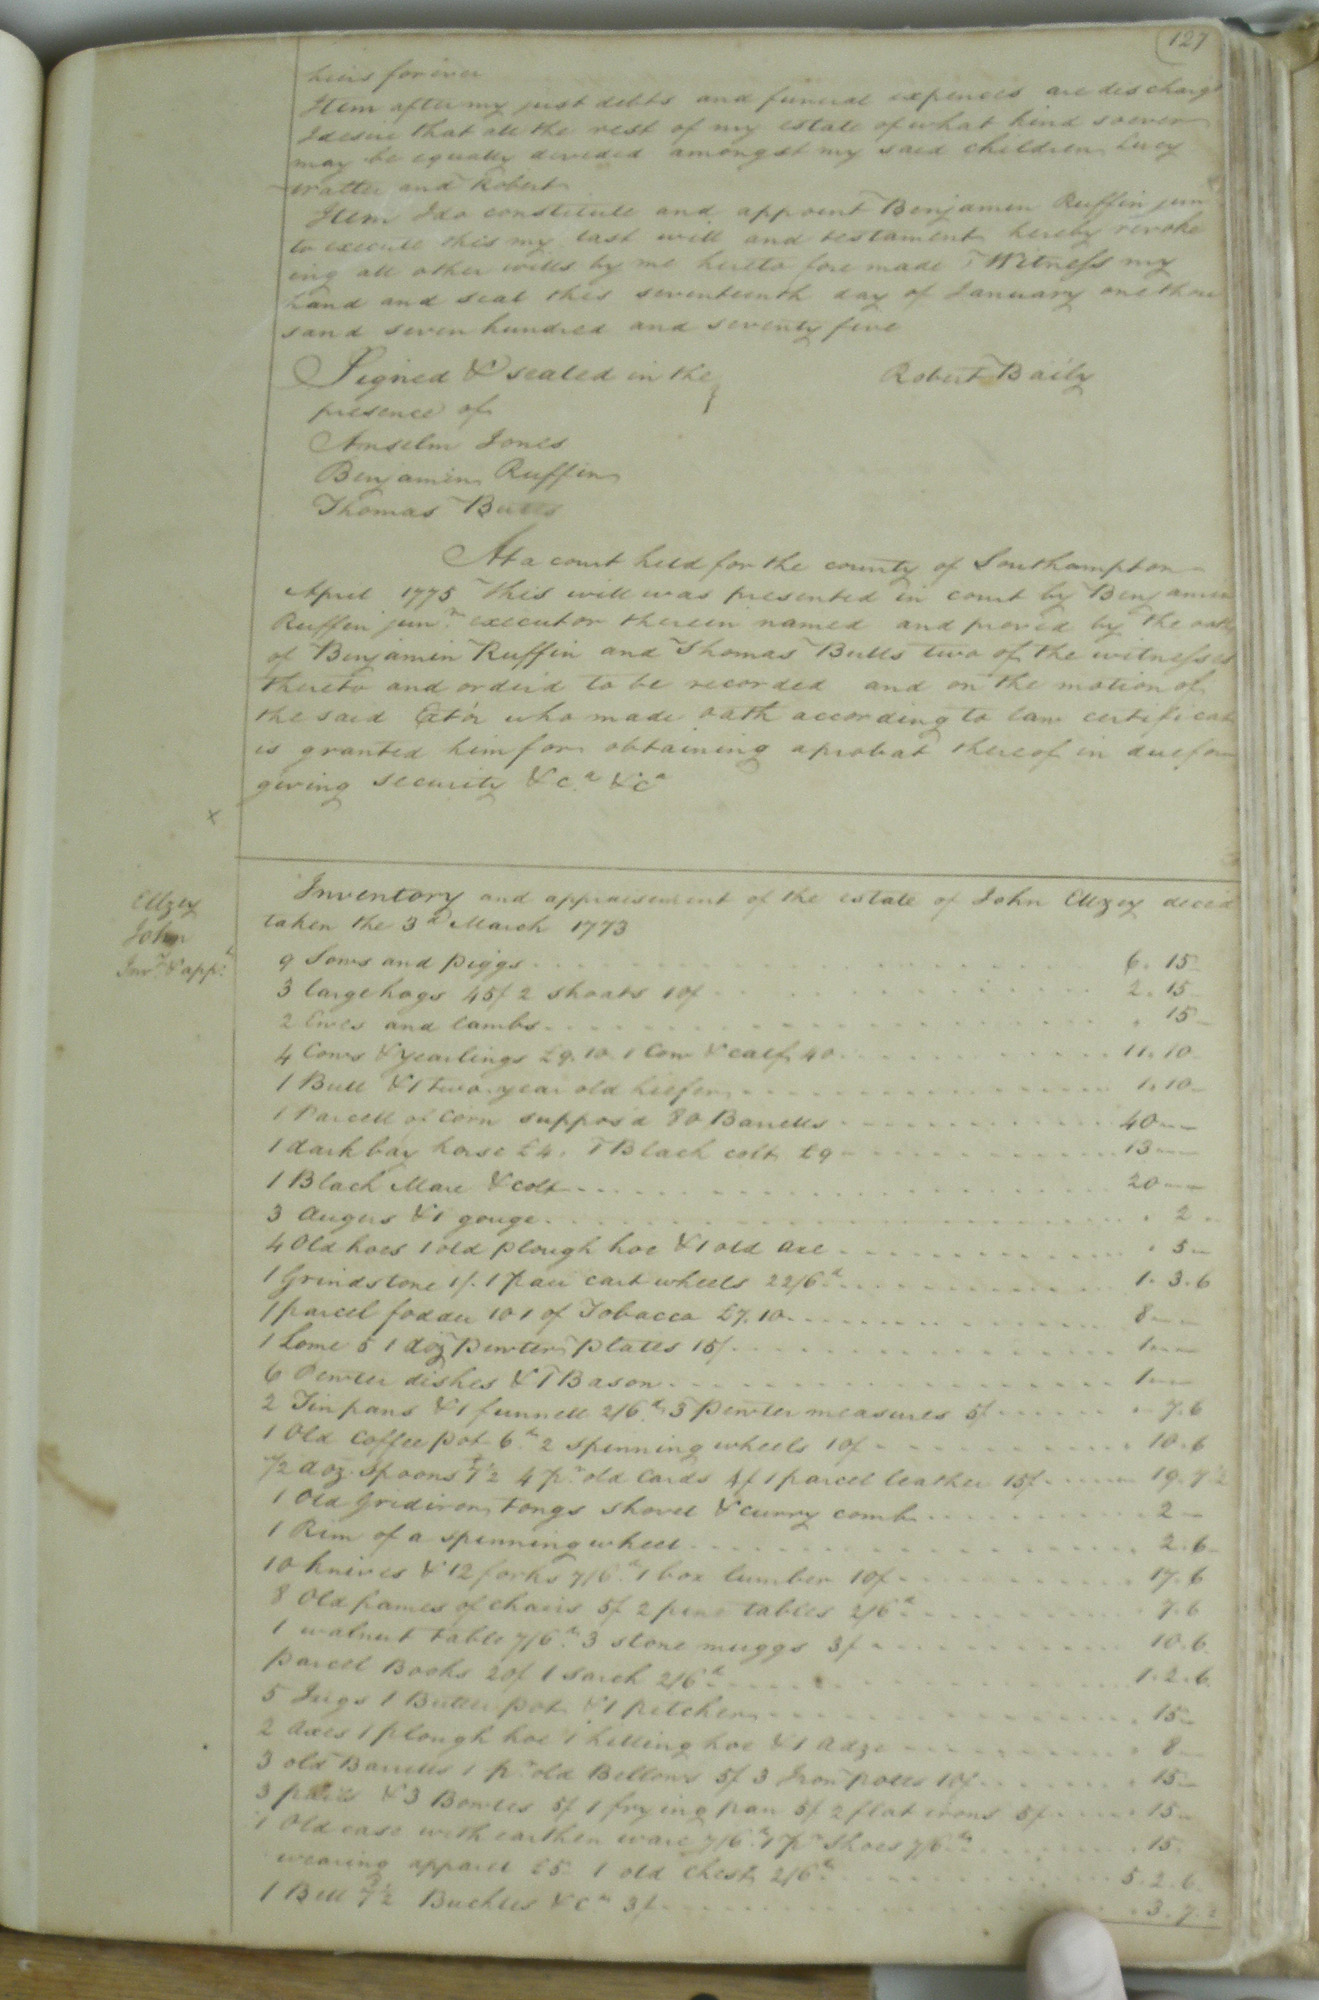 127
heirs forever
Item after my just debts and funeral expences are discharg
I desire that all the rest of my estate of what kind soever
may be equally devided amongst my said children Lucy
Walter and Robert
Item I do constitute and appoint Benjamin Ruffin jun
to execute this my last will and testament hereby revoke
ing all other wills by me hereto fore made Witness my
hand and seal this seventeenth day of January one thou
sand seven hundred and seventy five
Signed & sealed in the Robert Baily
presence of
Anselm Jones
Benjamin Ruffin
Thomas Butts
At a court held for the county of Southampton
April 1775 This will was presented in court by Benjamin
Ruffin junr. executor therein named and proved by the oath
of Benjamin Ruffin and Thomas Butts two of the witnesses
thereto and orderd to be recorded and on the motion of
the said Extor who made oath according to law certificat
is granted him for obtaining a probat thereof in due form
giving security &ca &ca
x
Ellzey
John
Invy. & appt.
Inventory and appraisement of the estate of John Ellzey deced
taken the 3d March 1773
9 Sows and piggs 6. 15
3 large hogs 45/ 2 shoats 10/ 2. 15
2 Ewes and lambs 15
4 Cows & yearlings £9. 10. 1 Cow & calf 40 11. 10
1 Bull & 1 two year old heifer 1. 10
1 Parcell of Corn suppos'd 80 Barrells 40
1 dark bay horse £4. 1 Black colt £9 13
1 Black Mare & colt 20
3 Augers & 1 gouge 2
4 Old hoes 1 old plough hoe & 1 old axe 5
1 Grindstone 1/. 1 pair cart wheels 22/6d 1. 3. 6
1 parcel fodder 10 1 of Tobacco £7. 10 8
1 Lome 5 1 doz pewter plates 15/ 1
6 Pewter dishes & 1 Bason 1
2 Tin pans & 1 funnell 2/6d 3 pewter measures 5/ 7. 6
1 Old Coffee pot 6d 2 spinning wheels 10/ 10. 6
1/2 doz. spoons 7½ 4 pr old Cards 4/ 1 parcel leather 15/ 19. 7½
1 Old Gridiron, tongs shovel & curry comb 2
1 Rim of a spinning wheel 2. 6
10 knives & 12 forks 7/6d 1 box lumber 10/ 17. 6
8 Old frames of chairs 5/ 2 pine tables 2/6d 7. 6
1 walnut table 7/6d 3 stone muggs 3/ 10. 6
parcel Books 20/ 1 sarch 2/6d 1. 2. 6
5 Jugs 1 Butter pot & 1 pitcher 15
2 axes 1 plough hoe 1 hilling hoe & 1 adze 8
3 old Barrells 1 pr old Bellows 5/ 3 Iron potts 10/ 15
3 pails & 3 Bowles 5/ 1 frying pan 5/ 2 flat irons 5/ 15
1 Old case with earthen ware 7/6d 1 pr shoes 7/6d 15
wearing apparel £5 1 old Chest 2/6d 5. 2. 6
1 Bell 7½ Buckles &ca 3/ 3. 7½